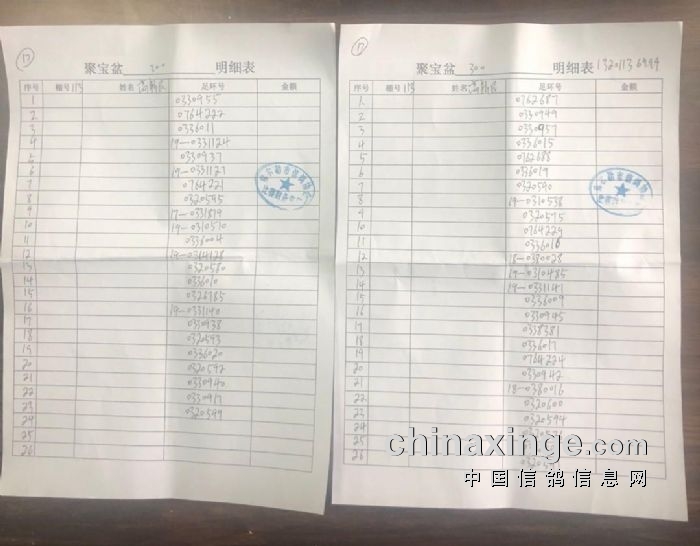 17
聚宝盆 300 明细表
序号 棚号 113 姓名 足环号 金额
1 0330955
2 0764222
3 0336011
4 19-0331124
5 0330937
6 19-0331127
7 0764221
8 0320595
9 17-0331819
10 19-0310570
11 0336004
12 19-0364128
13 0320580
14 0336010
15 0326985
16 19-0331140
17 0330938
18 0320593
19 0336020
20 0320592
21 0330940
22 0330917
23 0320599
24
25
26
17
聚宝盆 300 明细表 13201136994
序号 棚号 113 姓名 足环号 金额
1 0762687
2 0330949
3 0330957
4 0336015
5 0762688
6 0336019
7 0320590
8 19-0310538
9 0320575
10 0764229
11 0336016
12 18-0380028
13 19-0310485
14 19-0331141
15 0336009
16 0330945
17 0338381
18 0336017
19 0764224
20 0330942
21 18-0380016
22 0320600
23 0320594
24
25
26
chinaxinge.com
中国信鸽信息网